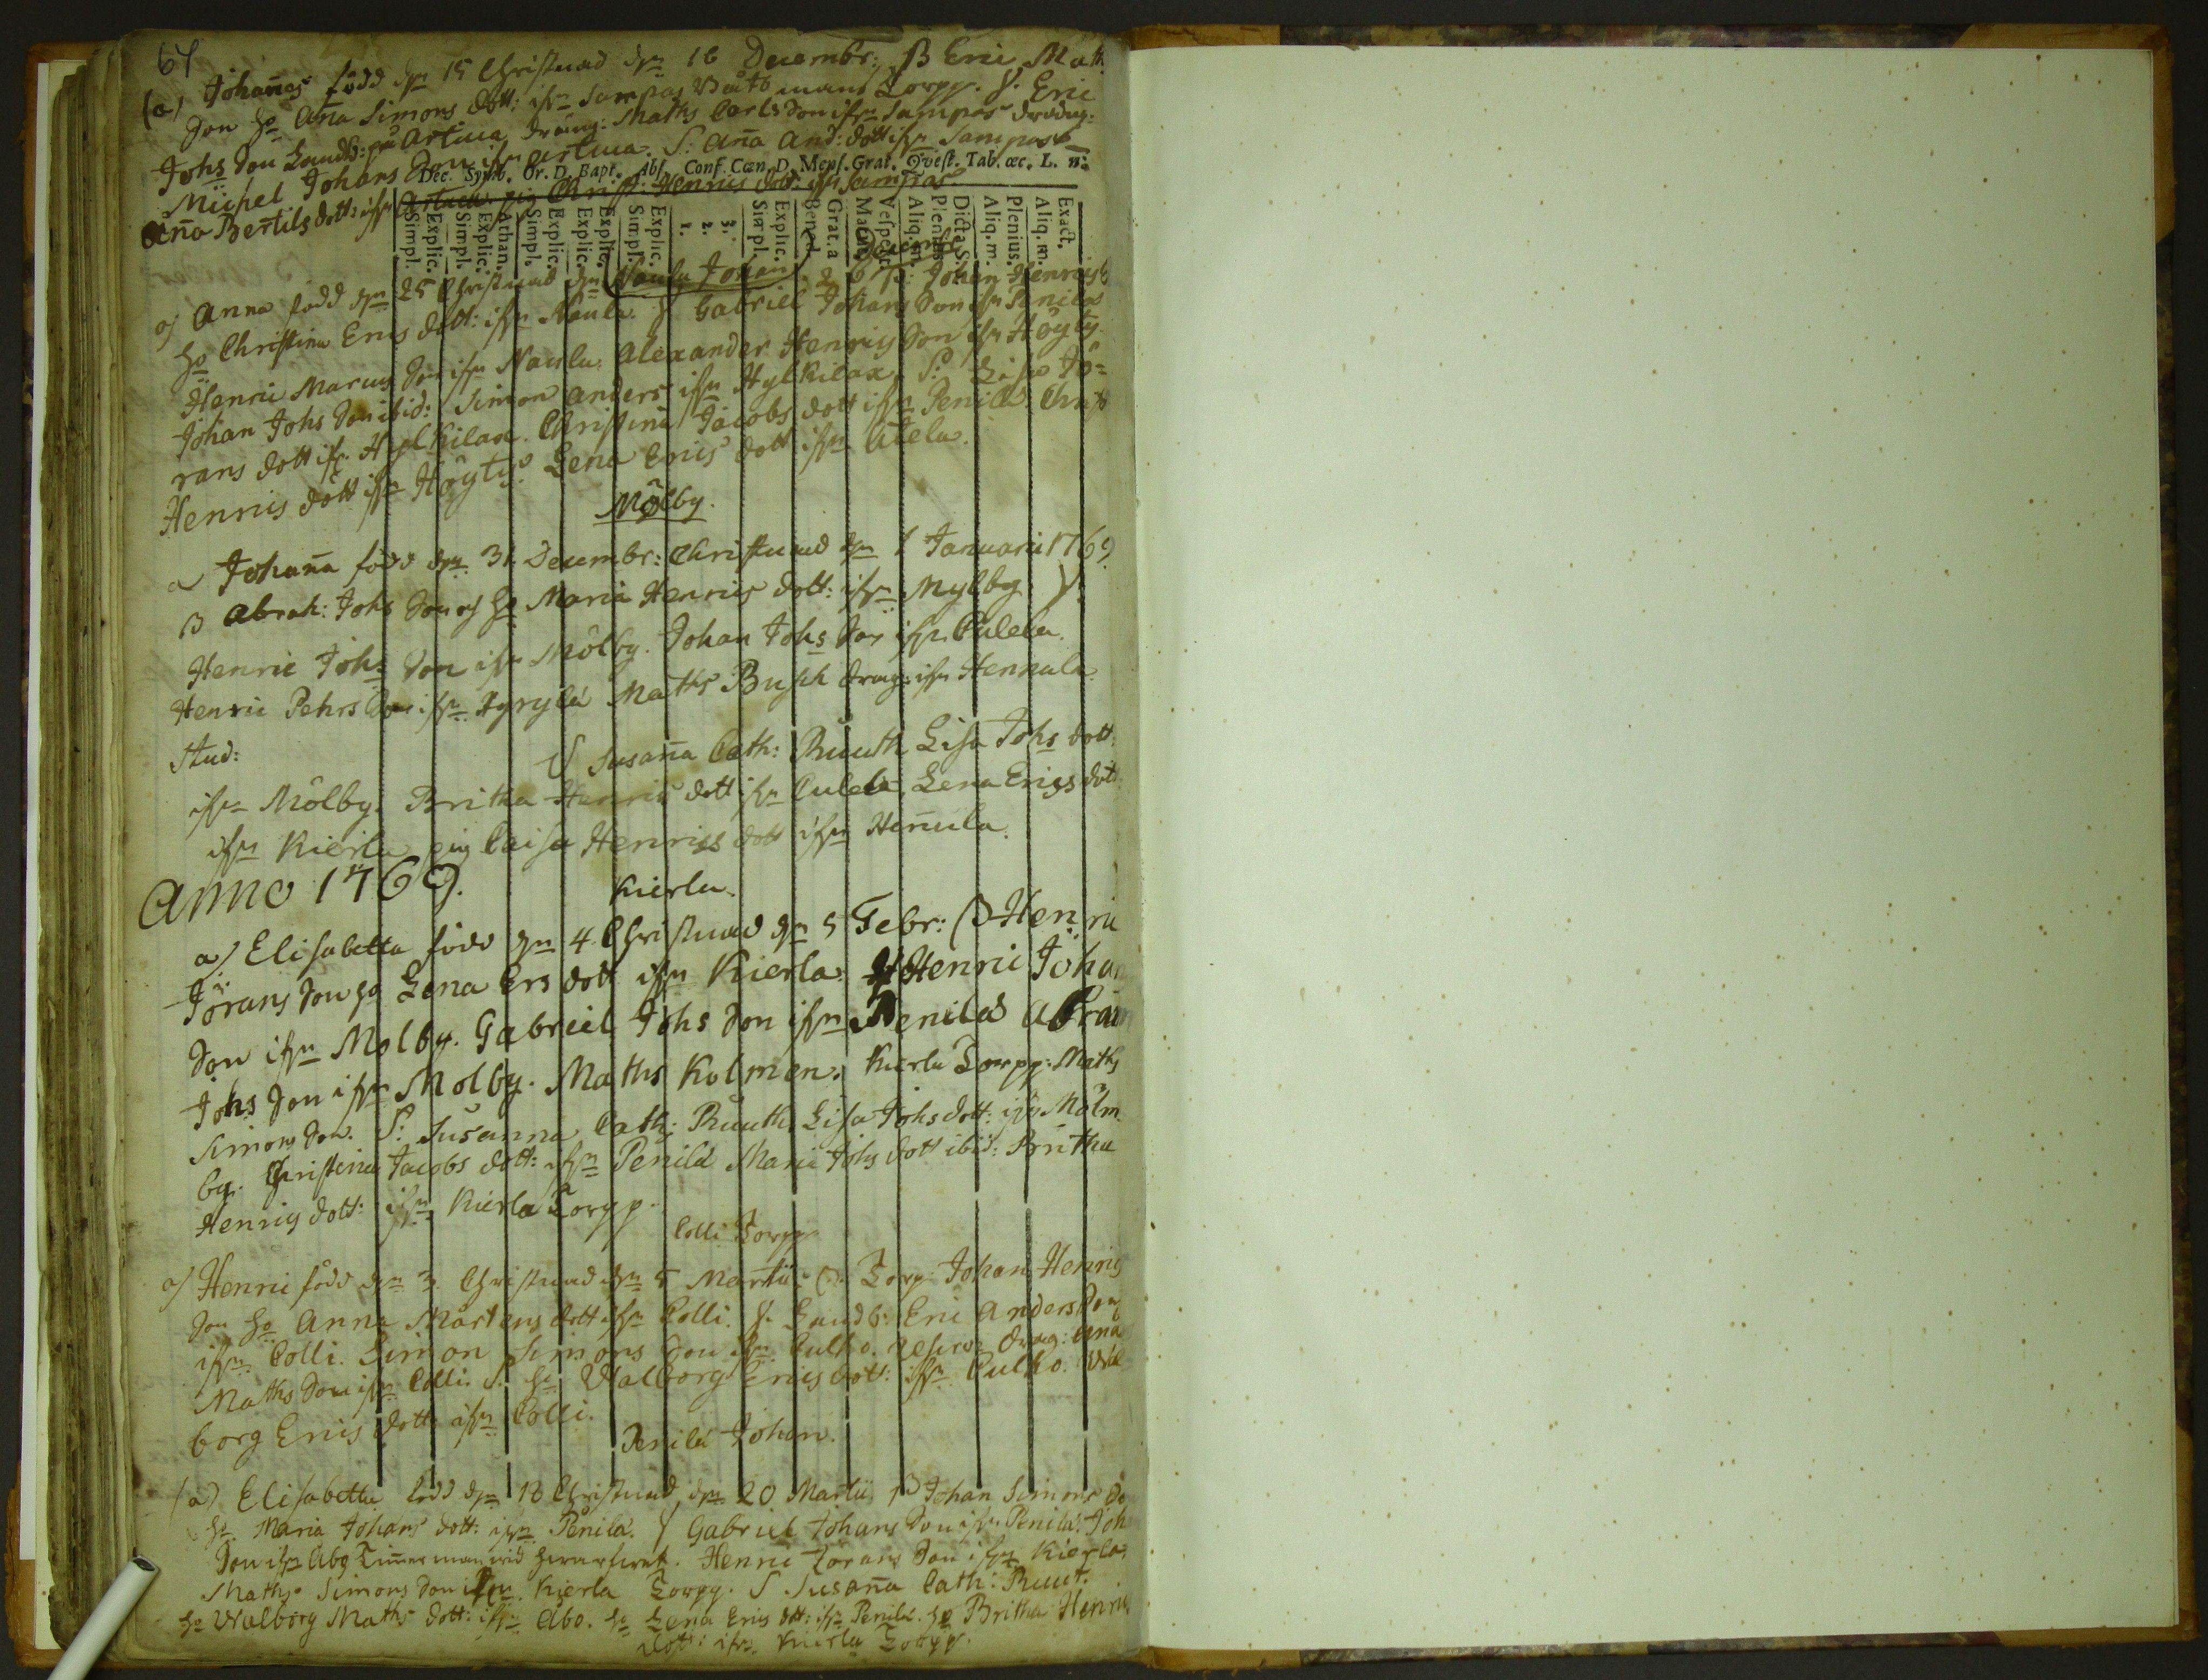 64
(a) Johañes född dn 15 Christnad dn 16 Decembr: B Eric Math
son ho Aña Simons dott: ifrn Sampas Båtsmans Torpp. J. Eric
Johs son Landb: på Artuca Dräng: Maths Carls son ifrn Sampas
Michel Johans son ifrn Artuca. S: Aña And: dott ifrn Sampas
Dec. Symb. Or. D. Bapt. Abs. Conf. Cœn. D. Mens. Grat. Qvest. Tab. œc. L. n:
Aña Bertils dott: ifrn Artuca. pig Christ: Henrics dott: ifrn Sampas.
Simpl. Explic. Simpl. Explic. Athan. Simpl. Explic. Explic. Explic. Simpl. Explic. 1. 2. 3. Simpl. Explic. Bened. Grat. a Matut. Vespert. Aliq. m. Plenius. Dicta S. Aliq. m. Plenius. Aliq. m. Exact.
Naula Johan
a) Anna född dn 25 Christnad dn 26 B: Johan Henrics
ho Christina Erics dott: ifrn Naula. J Gabriel Johans son ifrn Penilä
Henric Marcus son ifrn Naula. Alexander Henrics son ifrn Höglÿ
Johan Johs son ibid: Simon Anders ifrn Hylkilax. S: Lisa Jö-
rans dott ifr. Hylkilax. Christina Jacobs dott ifrn Penilä. Christ
Henrics dott ifrn Höytÿ. Lena Erics dott ifrn
Mÿlby.
a Johaña född dn 31. Decembr: Christnad dn 1 Januarii 1769
B Abrah: Johs son ho Maria Henrics dott: ifrn Mylby J.
Henric Johs son ifrn Mölby. Johan Johs son ifrn Culela.
Henric Pehrs son ifrn Hyrylä Maths Busk dräng: ifrn Hennala.
Stud: S Susaña Cath: Ruuth Lisa Johs dott:
ifrn Mölby. Britha Henrics dott ifrn Culela. Lena Erics dott
ifrn Kierla pig Caisa Henrics dott ifrn Heñula.
Anno 1769. Kierla.
a) Elisabetta född dn 4 Christnad dn 5 Febr: B Henric
Jörans son ho Lena Ers dott ifrn Kierla. J Henric Johan
son ifrn Molby. Gabriel Johs son ifrn Penilä Abram
Johs son ifrn Molby. Maths Kolmen. Kierla Torpp: Maths
Simons son. S: Susanna Cath: Ruuth Lisa Johs dott: ifrn Möl
by. Christina Jacobs dott: ifrn Penilä Maria Johs dott ibid: Britha
Henrics dott: ifrn Kierla Torpp.
Colli Torpp
a) Henric född dn 3. Christnad dn 5 Martii B Torp: Johan Henrics
son ho Anna Mårtens dott ifrn Colli. J. Landb: Eric Anders son
ifrn Colli. Simon Simons son ifrn Culho. dräng:
Maths son ifrn Colli. S: ho Walborg Erics dott: ifrn Culho. Wal
borg Erics dott: ifrn Colli.
Penilä Johan.
(a) Elisabetta född dn 18 Christnad dn 20 Martii B Johan Simons
ho Maria Johans dott: ifrn Penilä. J Gabriel Johans son ifrn Penilä. Joh
son ifrn Åbo Timmerman Henric Jörans son ifrn Kierla
Maths Simons son ifrn Kierla Torpp. S Susaña Cath: Ruut.
ho Walborg Maths dott: ifrn Åbo. ho Lena Erics dott: ifrn Penilä. ho Britha Henrics
dott: ifrn Kierla Torpp.